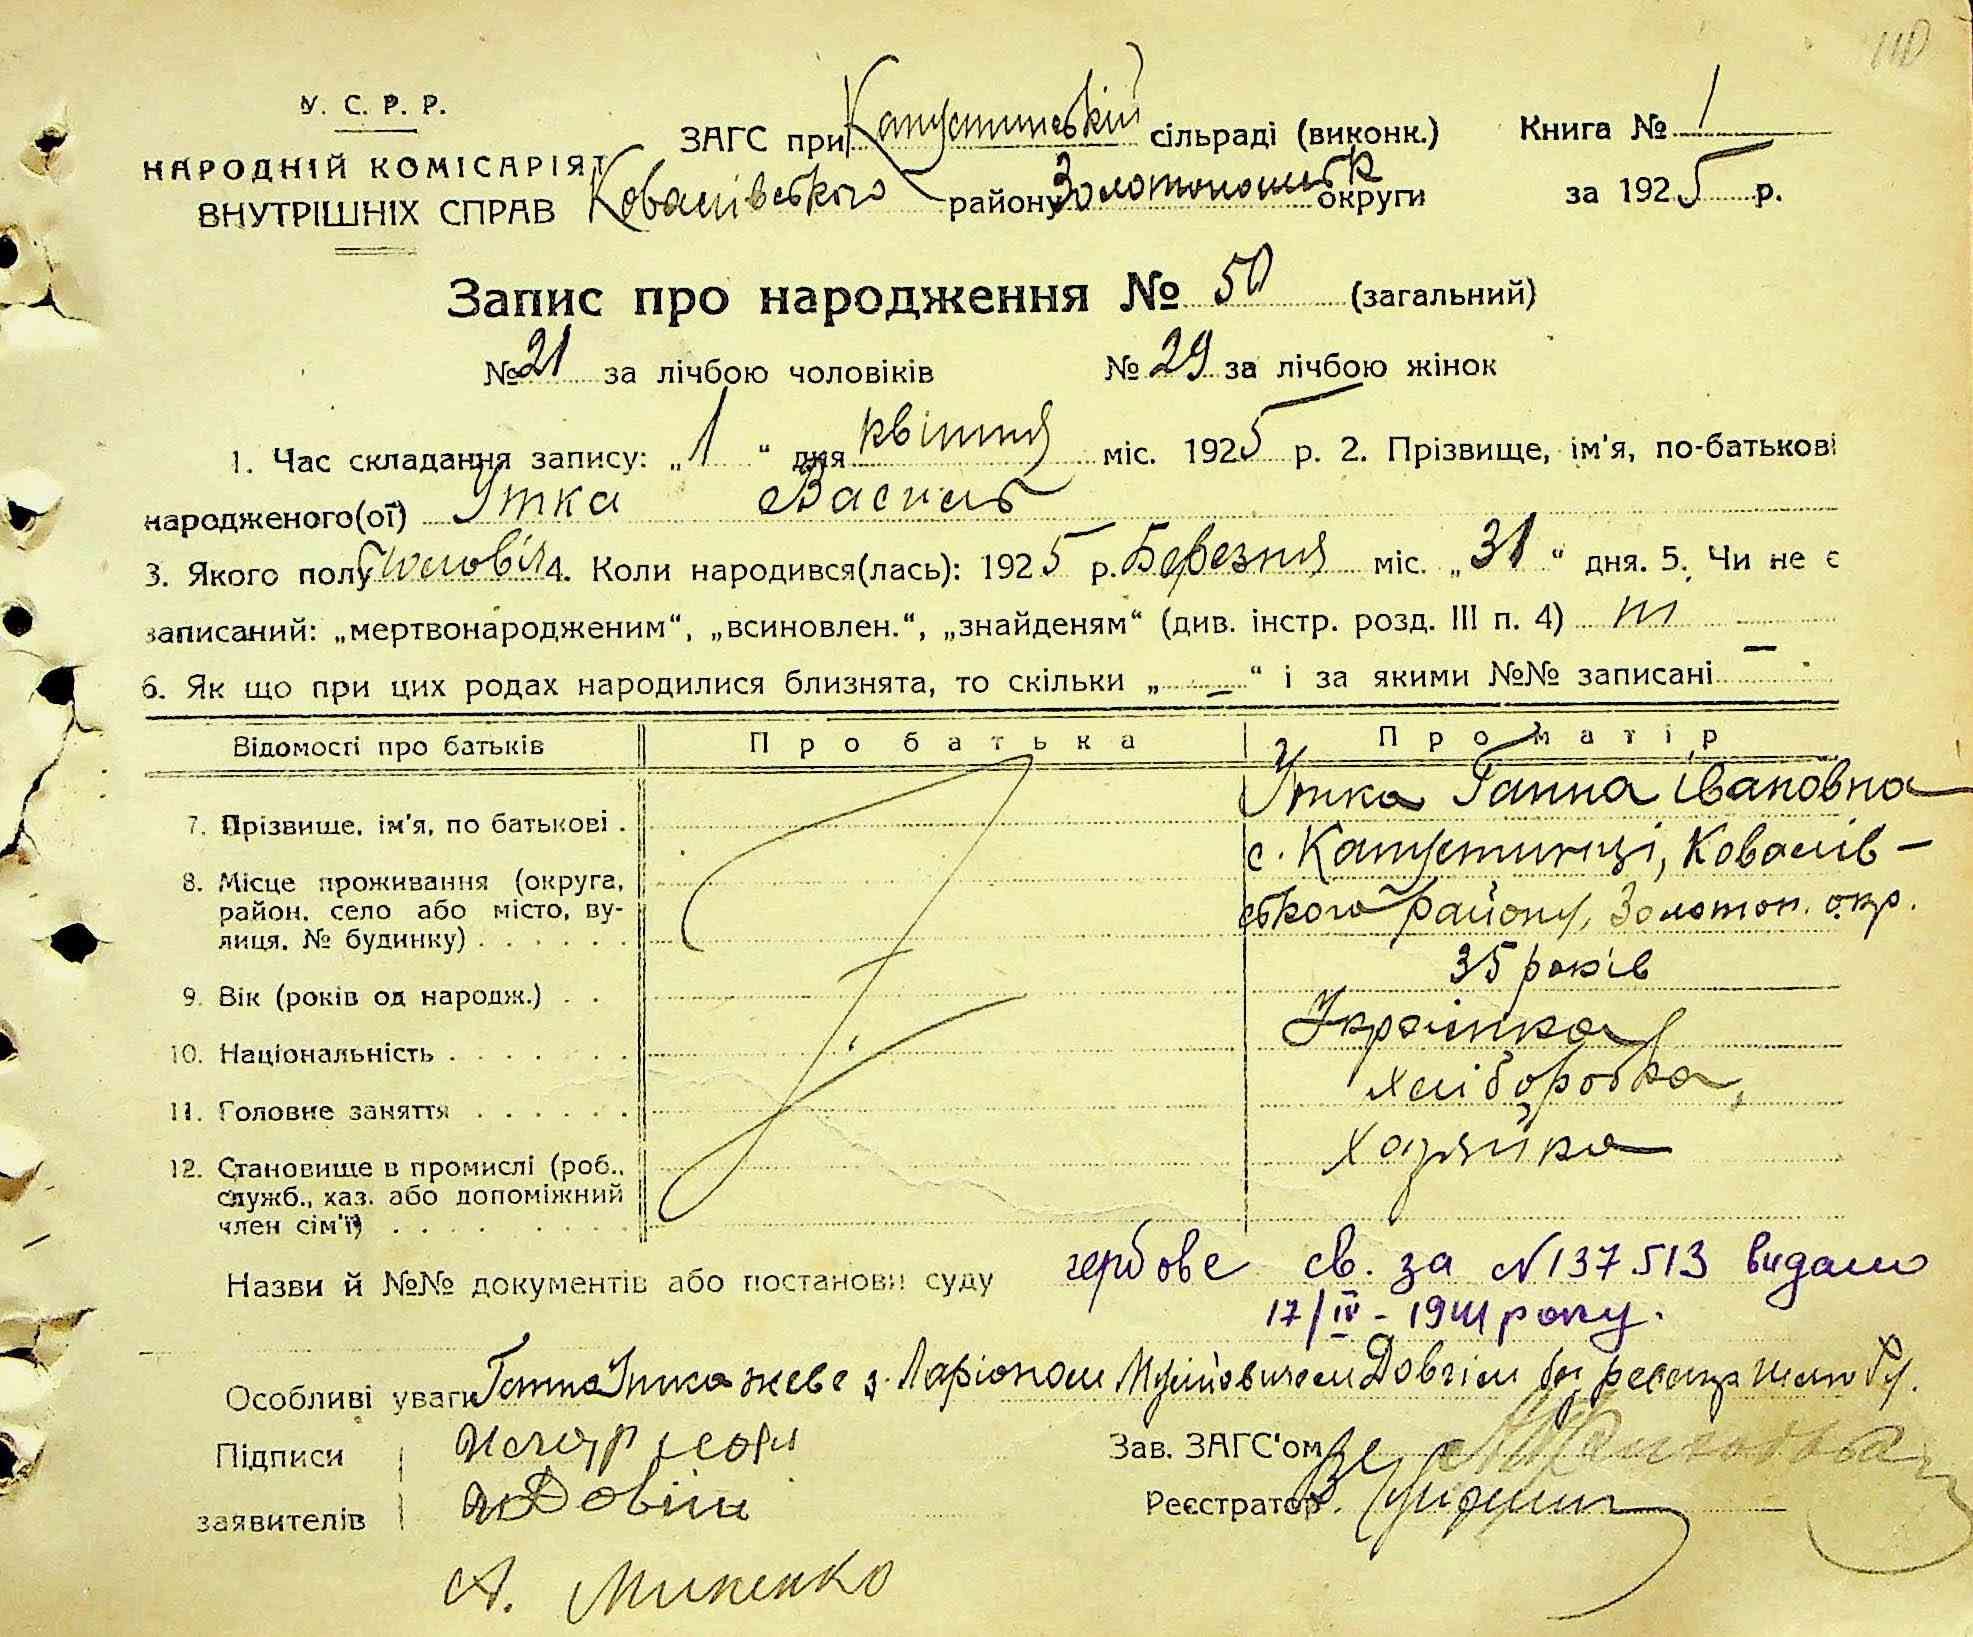 110
У. С. Р. Р.
НАРОДНІЙ КОМІСАРІЯТ
ВНУТРІШНІХ СПРАВ
ЗАГС при Капустинській сільраді (виконк.) Книга № 1
Ковалівського району Золотоноськ округи за 1925 р.
Запис про народження № 50 (загальний)
№ 21 за лічбою чоловіків № 29 за лічбою жінок
1. Час складання запису: „1“ дня квітня міс. 1925 р. 2. Прізвище, ім'я, по-батькові
народженого(ої) Утка Василь
3. Якого полу чоловіч 4. Коли народився(лась): 1925 р. Березня міс. „31“ дня. 5. Чи не є
записаний: „мертвонародженим“, „всиновлен.“, „знайденям“ (див. інстр. розд. III п. 4) ні —
6. Як що при цих родах народилися близнята, то скільки „—“ і за якими №№ записані —
Відомості про батьків Про батька Про матір
7. Прізвище, ім'я, по батькові . Утка Ганна Івановна
8. Місце проживання (округа, район, село або місто, вулиця, № будинку) . . . . . . с. Капустинці, Ковалів-
ського району, Золотон. окр.
9. Вік (років од народж.) . . 35 років
10. Національність . . . . . . Українка
11. Головне заняття . . . . . . хліборобка,
12. Становище в промислі (роб., служб., хаз. або допоміжний член сім'ї) . . . . . . . . хазяйка
Назви й №№ документів або постанови суду гербове св. за №137513 видано
17/IV - 1941 року.
Особливі уваги Ганна Утка живе з Ларіоном Мусійовичем Довгим без реєстр шлюбу.
Підписи
заявителів
Довгий
А. Миненко
Зав. ЗАГС'ом
Реєстратор